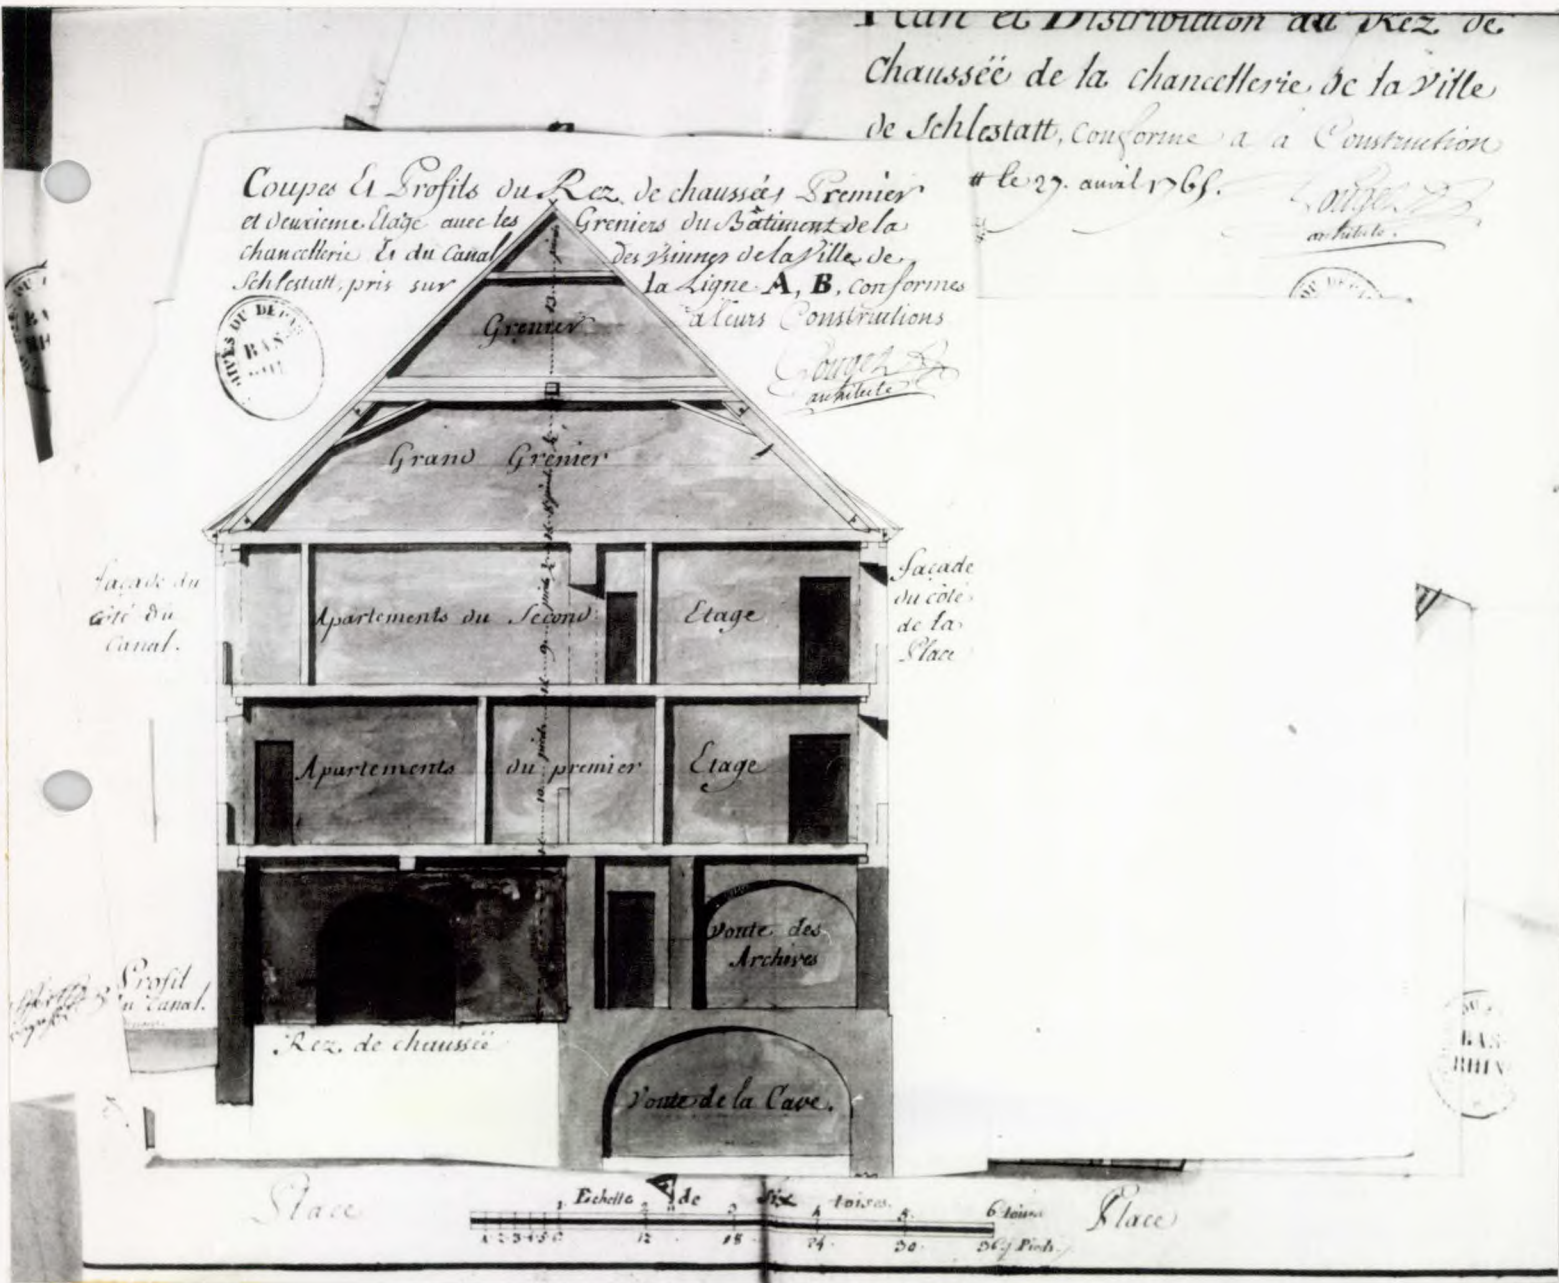 Plan et Distribution du Rez de
chausséë de la chancellerie de la Ville
de Schlestatt, conforme a la Construction
le 27. avril 1765.
architecte.
Coupes Et Profils du Rez de chausséë, Premier
et deuxieme Etage avec les Greniers du Bâtiment de la
chancellerie Et du Canal des Vannes de la Ville de
Schlestatt, pris sur la Ligne A, B, conformes
a leurs Constructions
architecte
BAS
Grenier
Grand Grenier
façade du
côté du
Canal.
Apartements du Second Etage
façade
du côté
de la
Place
Apartements du premier Etage
Voute des
Archives
Profil
du Canal.
Rez de chausséë
Voute de la Cave.
BAS
RHIN
Place
Echelle de Six toises.
Place
1 2 3 4 5 6 toises
1 2 3 4 5 6 12 18 24 30 36 Pieds